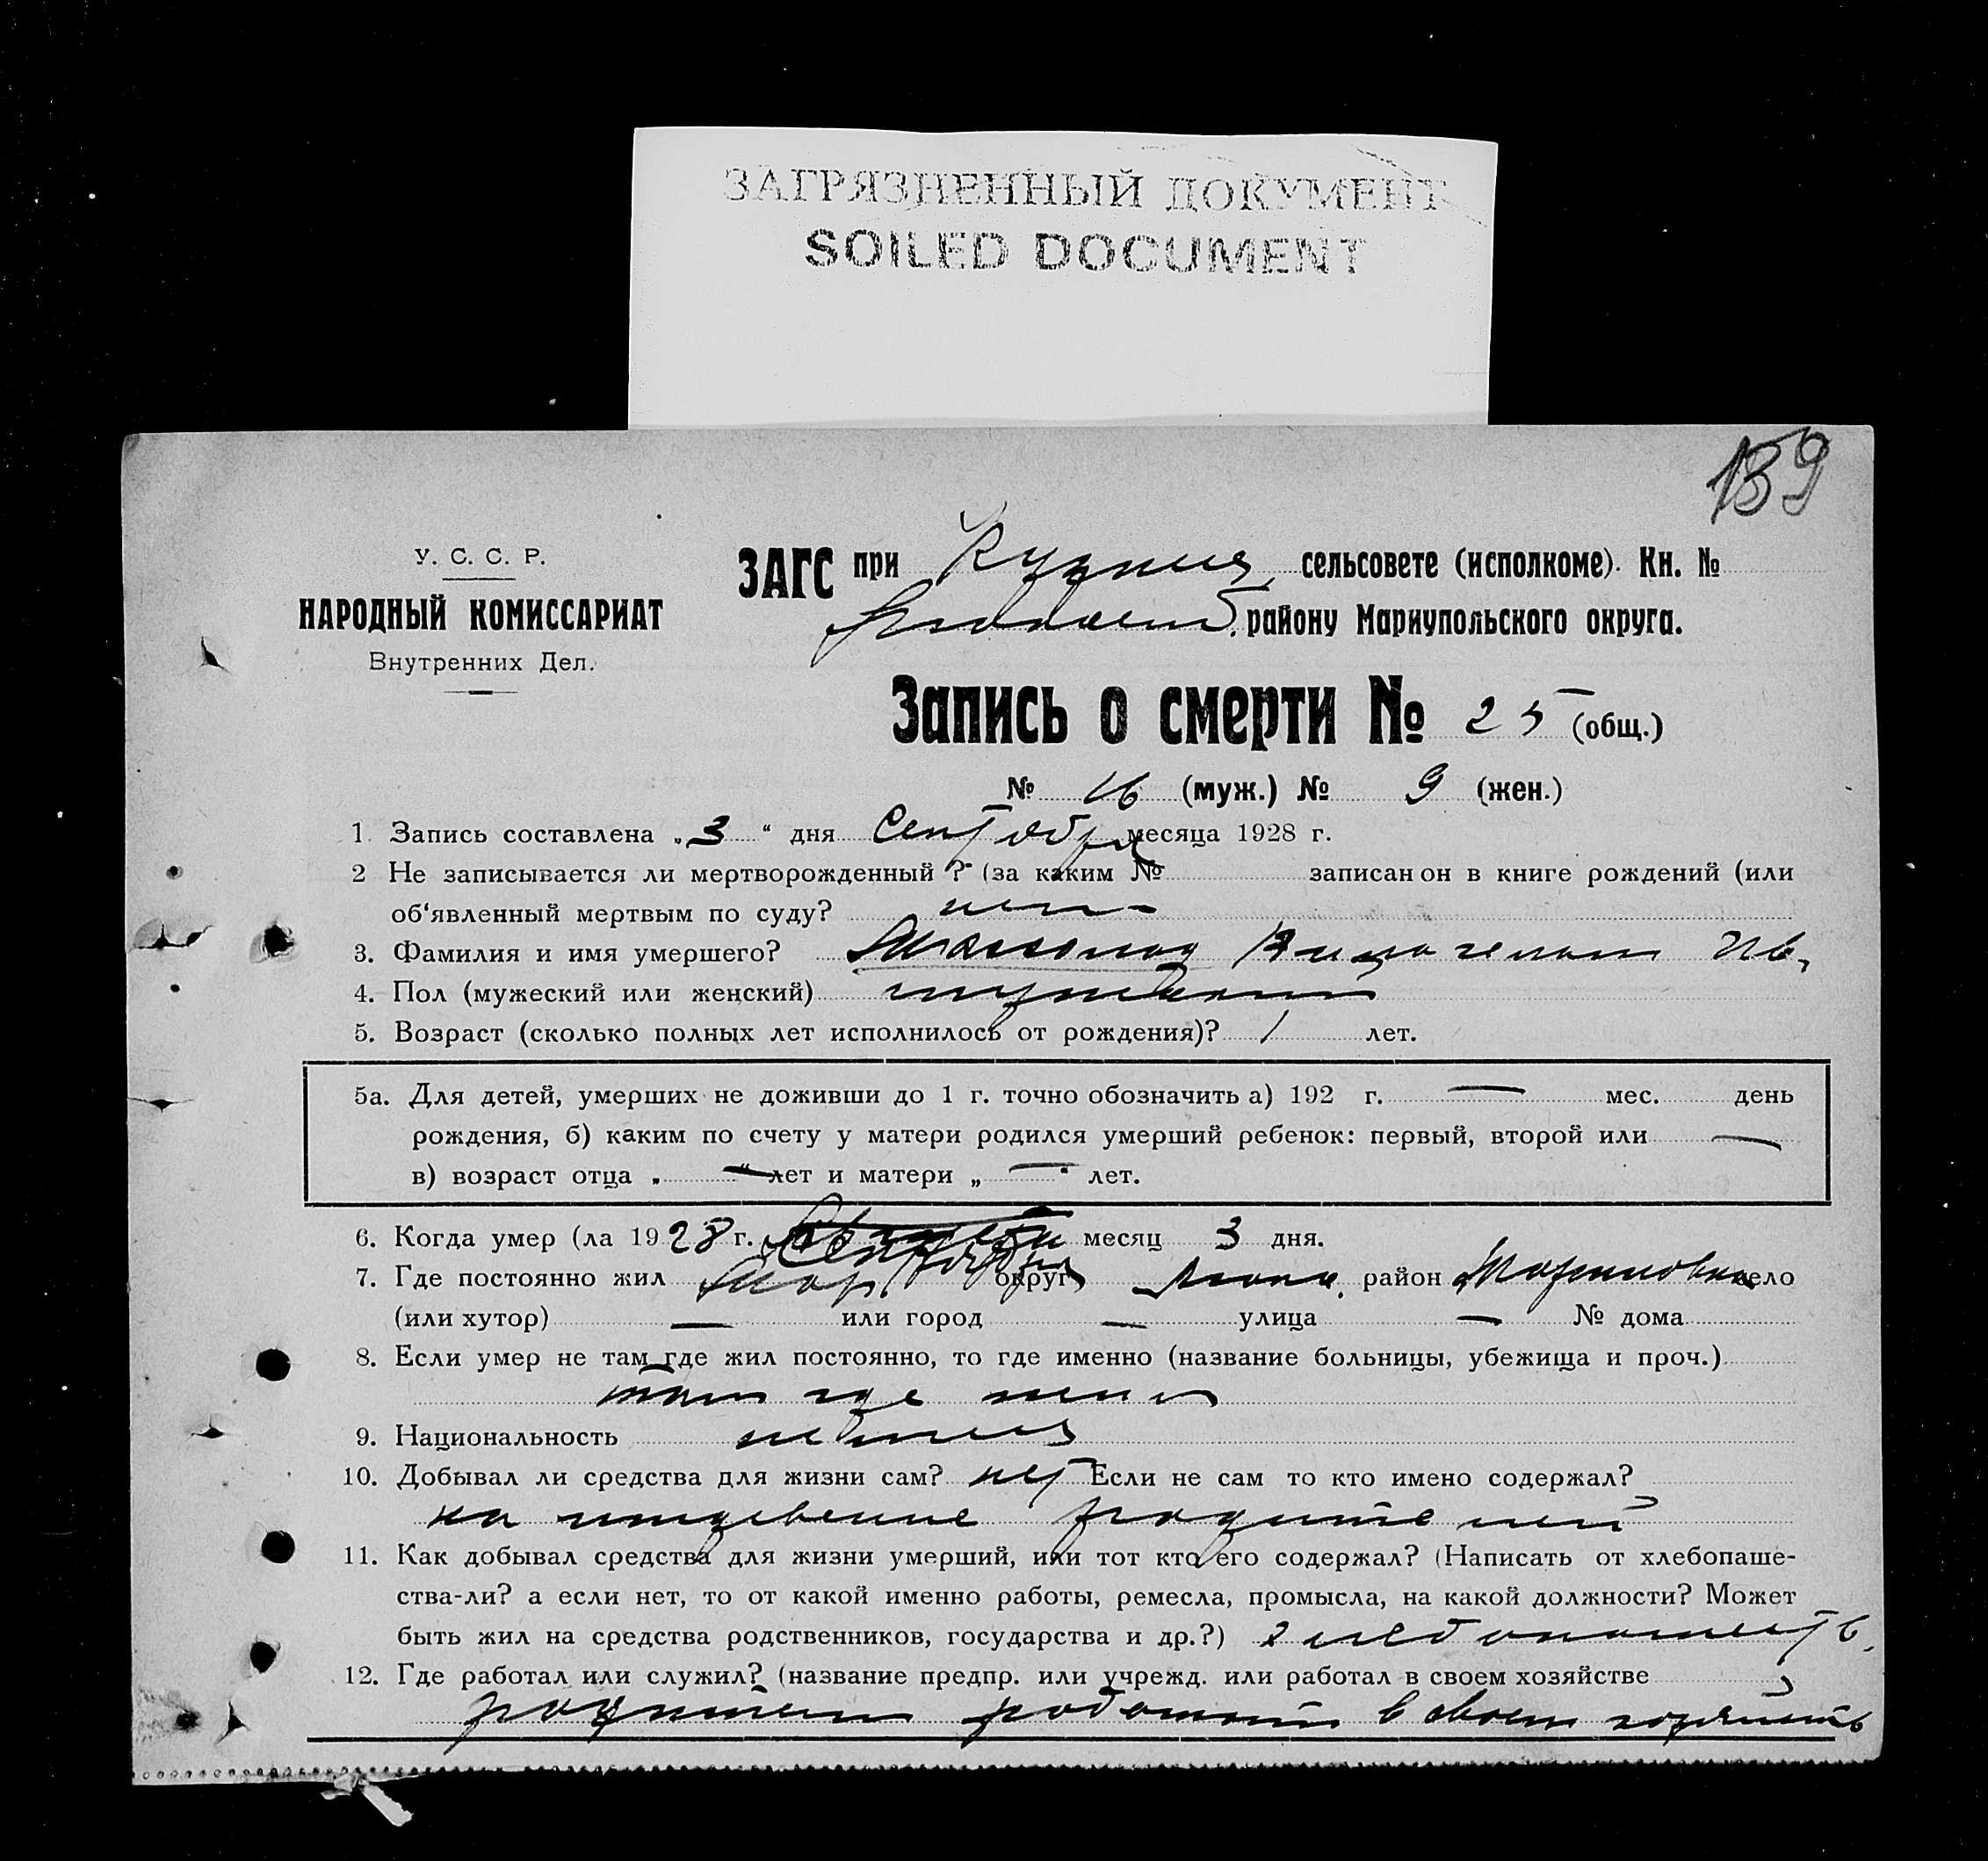 ЗАГРЯЗНЕННЫЙ ДОКУМЕНТ
SOILED DOCUMENT
139
У. С. С. Р.
НАРОДНЫЙ КОМИССАРИАТ
Внутренних Дел.
ЗАГС при сельсовете (исполкоме). Кн. №
району Мариупольского округа.
Запись о смерти № 25 (общ.)
№ 16 (муж.) № 9 (жен.)
1 Запись составлена „3“ дня Сентября месяца 1928 г.
2 Не записывается ли мертворожденный? (за каким № записан он в книге рождений (или
об‘явленный мертвым по суду? нет
3. Фамилия и имя умершего?
4. Пол (мужеский или женский) мужской
5. Возраст (сколько полных лет исполнилось от рождения)? 1 лет.
5а. Для детей, умерших не доживши до 1 г. точно обозначить а) 192 г. — мес. день
рождения, б) каким по счету у матери родился умерший ребенок: первый, второй или —
в) возраст отца „—“ лет и матери „—“ лет.
6. Когда умер (ла 1928 г. Сентября месяц 3 дня.
7. Где постоянно жил Мар. округ район село
(или хутор) — или город — улица — № дома
8. Если умер не там где жил постоянно, то где именно (название больницы, убежища и проч.)
там где жил
9. Национальность немец
10. Добывал ли средства для жизни сам? нет Если не сам то кто имено содержал?
на иждевение родителей
11. Как добывал средства для жизни умерший, или тот кто его содержал? (Написать от хлебопаше-
ства-ли? а если нет, то от какой именно работы, ремесла, промысла, на какой должности? Может
быть жил на средства родственников, государства и др.?) хлебопашеств.
12. Где работал или служил? (название предпр. или учрежд. или работал в своем хозяйстве
родители работают в своем хозяйств